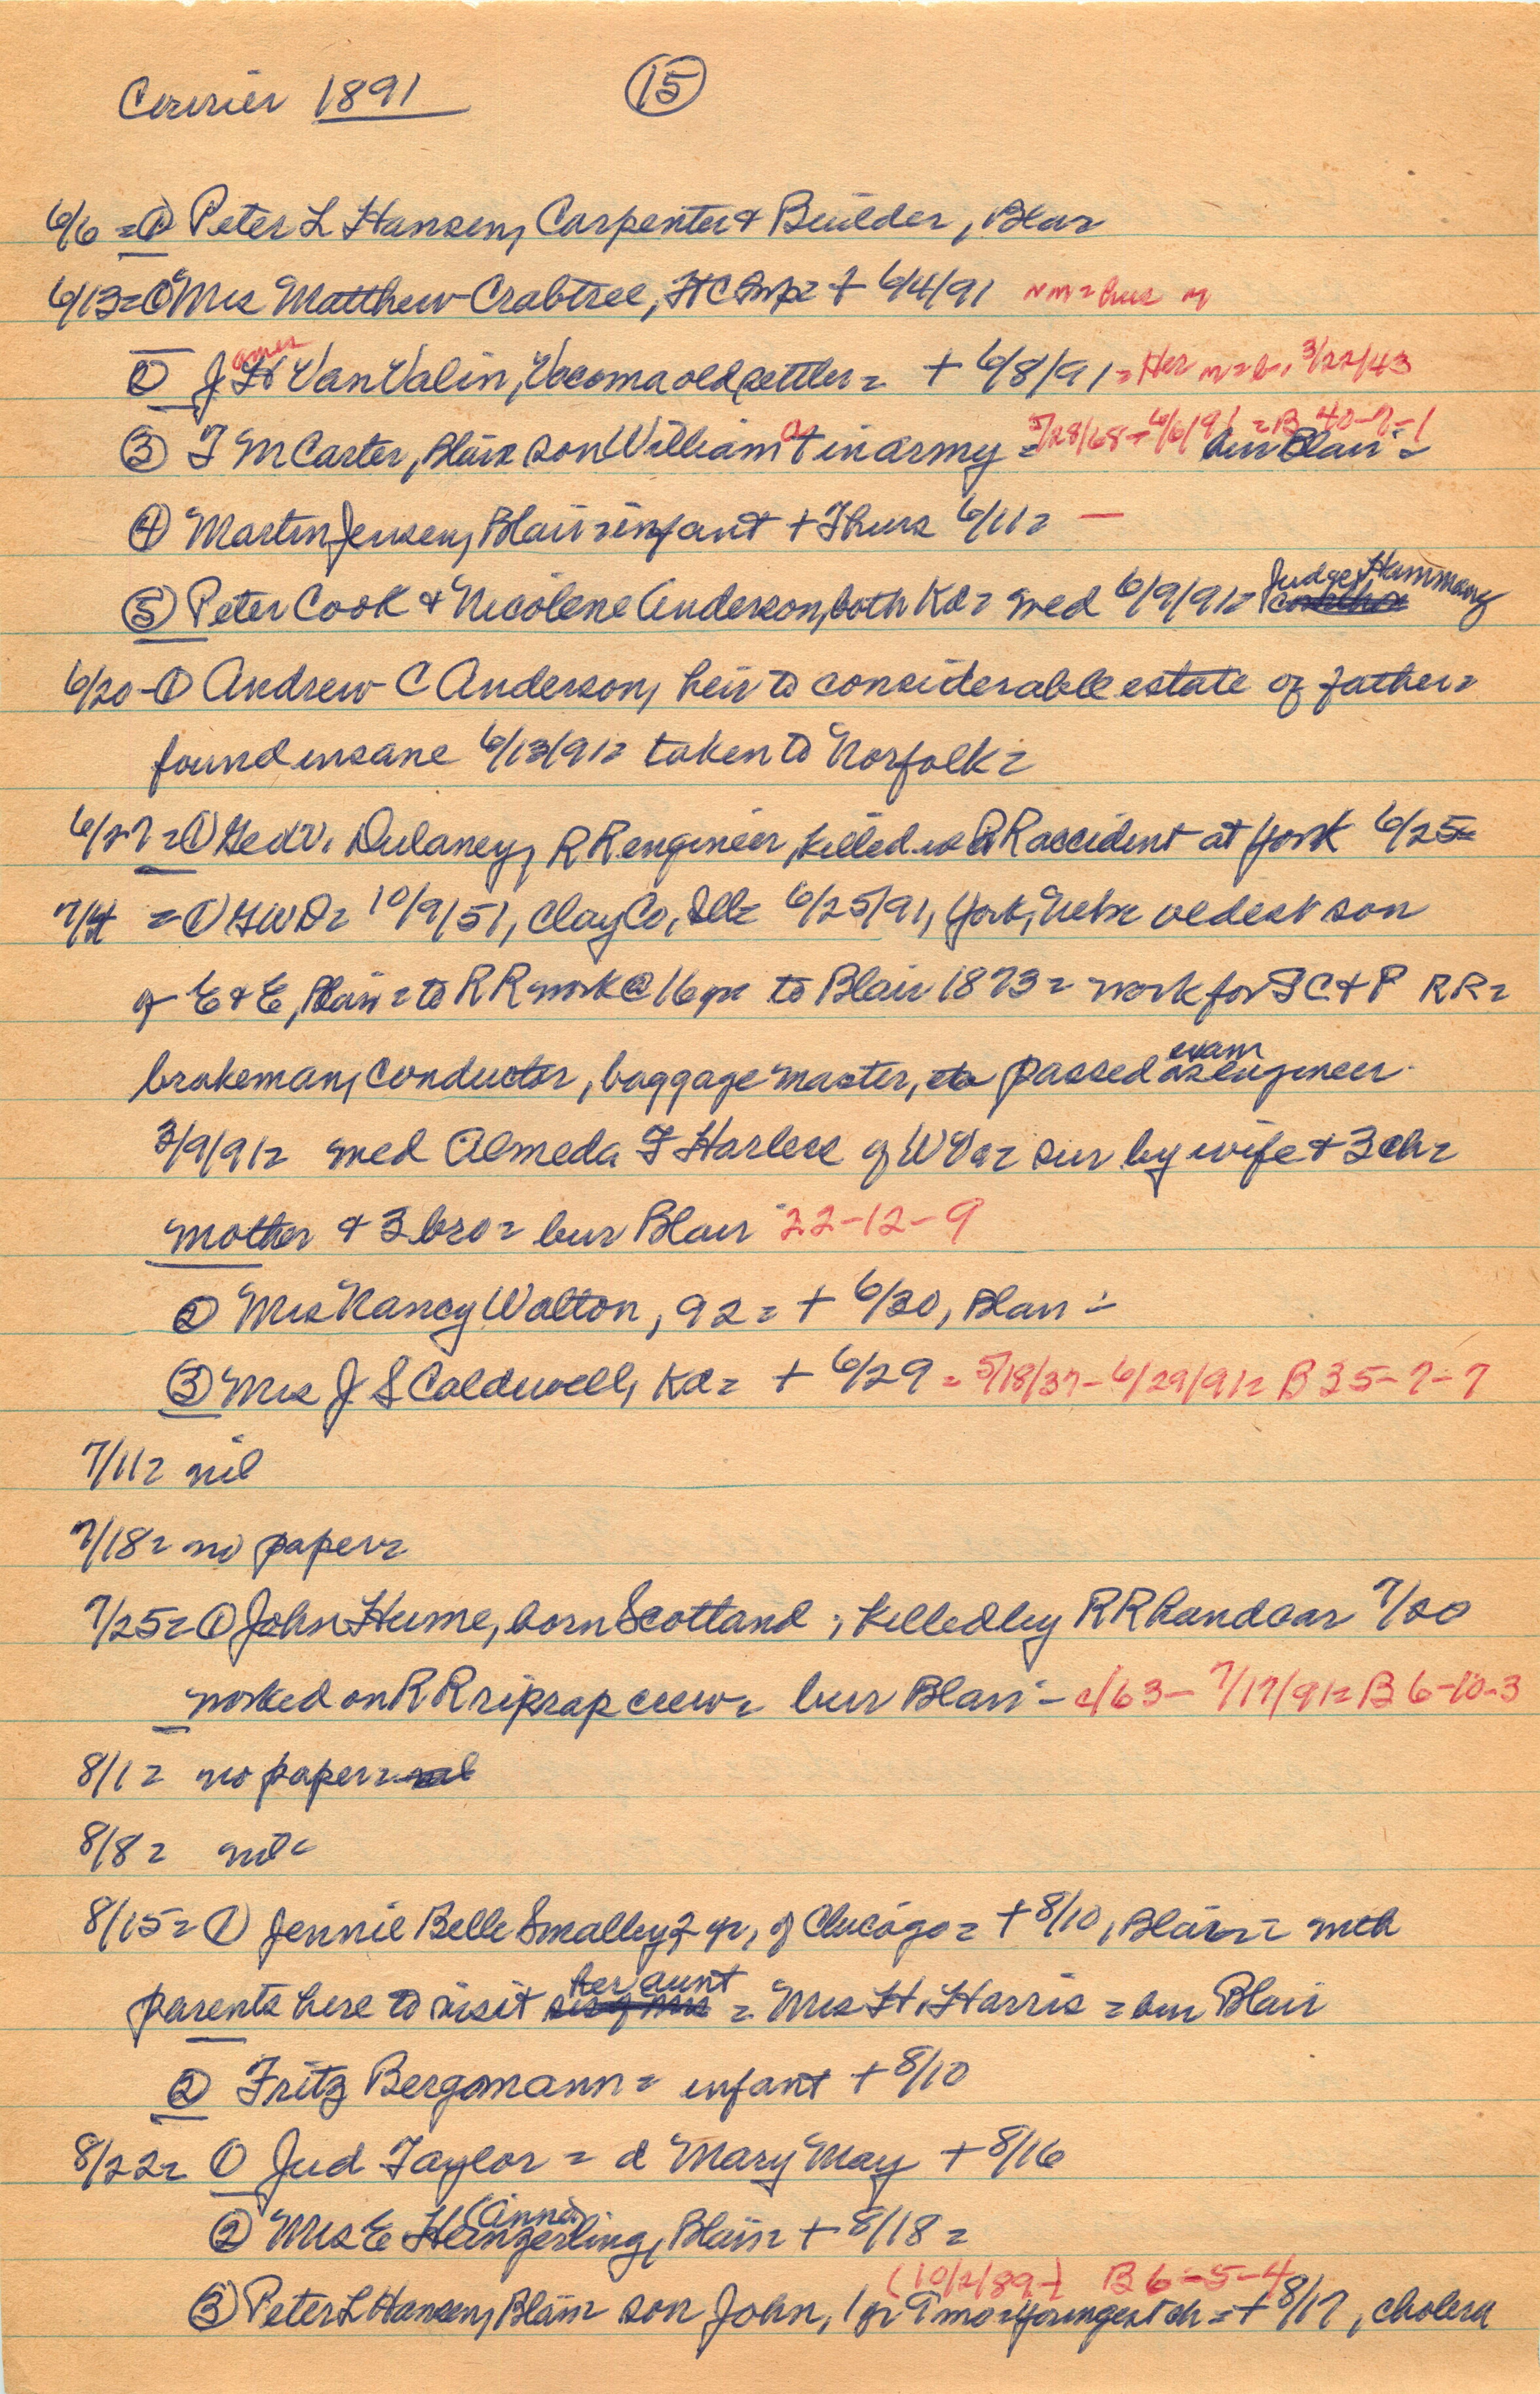 Courier 1891 15
6/6 = 1 Peter L Hansen, Carpenter & Builder, Blair
6/13 = 1 Mrs Matthew Crabtree, HC = + 6/4/91
2 J H ames Van Valin, Vacoma old settler = + 6/8/91 = Her m = b. 3/22/43
3 J M Carter, Blair son William in army = 5/28/68 - 6/6/91 = B 40-7-1 bur Blair =
4 Martin Jensen, Blair = infant + Thurs 6/11 = —
5 Peter Cook & Nicolene Anderson, both Kd = med 6/9/91 = Judge Hammang
6/20 - 1 Andrew C Anderson, heir to considerable estate of father =
found insane 6/13/91 = taken to Norfolk =
6/27 = 1 Geo W. Dulaney, RR engineer, killed in RR accident at York 6/25 =
7/4 = 1 GWD = 10/9/51, Clay Co, Ill = 6/25/91, York, Nebr oldest son
of E & E, Blair = to RR work @ 16 yr to Blair 1873 = work for SC & P RR =
brakeman, conductor, baggage master, passed exam as engineer
3/9/91 = med Almeda F Harless of W Va = sur by wife & 3 ch =
mother & 3 bro = bur Blair 22-12-9
2 Mrs Nancy Walton, 92 = + 6/30, Blair =
3 Mrs J S Caldwell, Kd = + 6/29 = 5/18/37 - 6/29/91 = B 35-7-7
7/11 = nil
7/18 = no paper =
7/25 = 1 John Hume, born Scotland, killed by RR handcar 7/20
worked on RR riprap crew = bur Blair - c/63 - 7/17/91 = B 6-10-3
8/1 = no paper = nil
8/8 = nil =
8/15 = 1 Jennie Belle Smalley, 2 yr, of Chicago = + 8/10, Blair = with
parents here to visit her aunt = Mrs H. Harris = bur Blair
2 Fritz Bergmann = infant + 8/10
8/22 = 1 Jud Taylor = d Mary May + 8/16
2 Mrs E (Anna) Heinzerling, Blair = + 8/18 =
(10/2/89-) B 6-5-4
3 Peter L Hansen, Blair = son John, 1 yr 9 mo = youngest ch = + 8/17, cholera